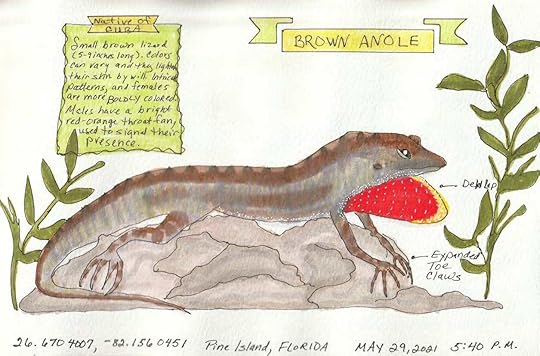 Native of
CUBA
Small brown lizard
(5-9 inches long). Colors
can vary and they
their skin by will
patterns, and females
are more BOLDLY colored.
Males have a bright
red-orange throat fan,
used to signal their
presence...
BROWN ANOLE
Dewlap
Expanded
Toe
Claws
26.6704007, -82.1560451 Pine Island, FLORIDA MAY 29, 2021 5:40 P.M.